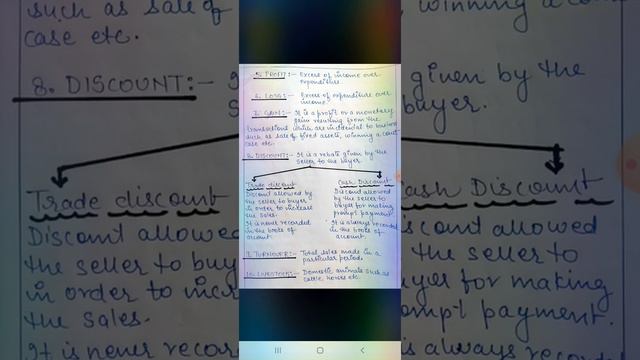 5. PROFIT:- Excess of income over
expenditure.
6. LOSS:- Excess of expenditure over
income.
7. GAIN:- It is a profit or a monetary
gain resulting from the
transactions which are incidental to business
such as sale of fixed assets, winning a court
case etc.
8. DISCOUNT:- It is a rebate given by the
seller to the buyer.
Trade discount
Discount allowed by
the seller to buyer
in order to increase
the sales.
It is never recorded
in the books of
account.
Cash Discount
Discount allowed
by the seller to
buyer for making
prompt payment.
It is always recorded
in the books of
account.
9. TURNOVER:- Total sales made in a
particular period.
10. LIVESTOCK:- Domestic animals such as
cattle, horses etc.
such as sale of
case etc.
8. DISCOUNT:-
Trade discount
Discount allowed
the seller to buy
in order to incr
the sales.
It is never recor
winning a cou
given by the
buyer.
Cash Discount
iscount allowed
the seller to
uyer for making
ompt payment.
is always recorde